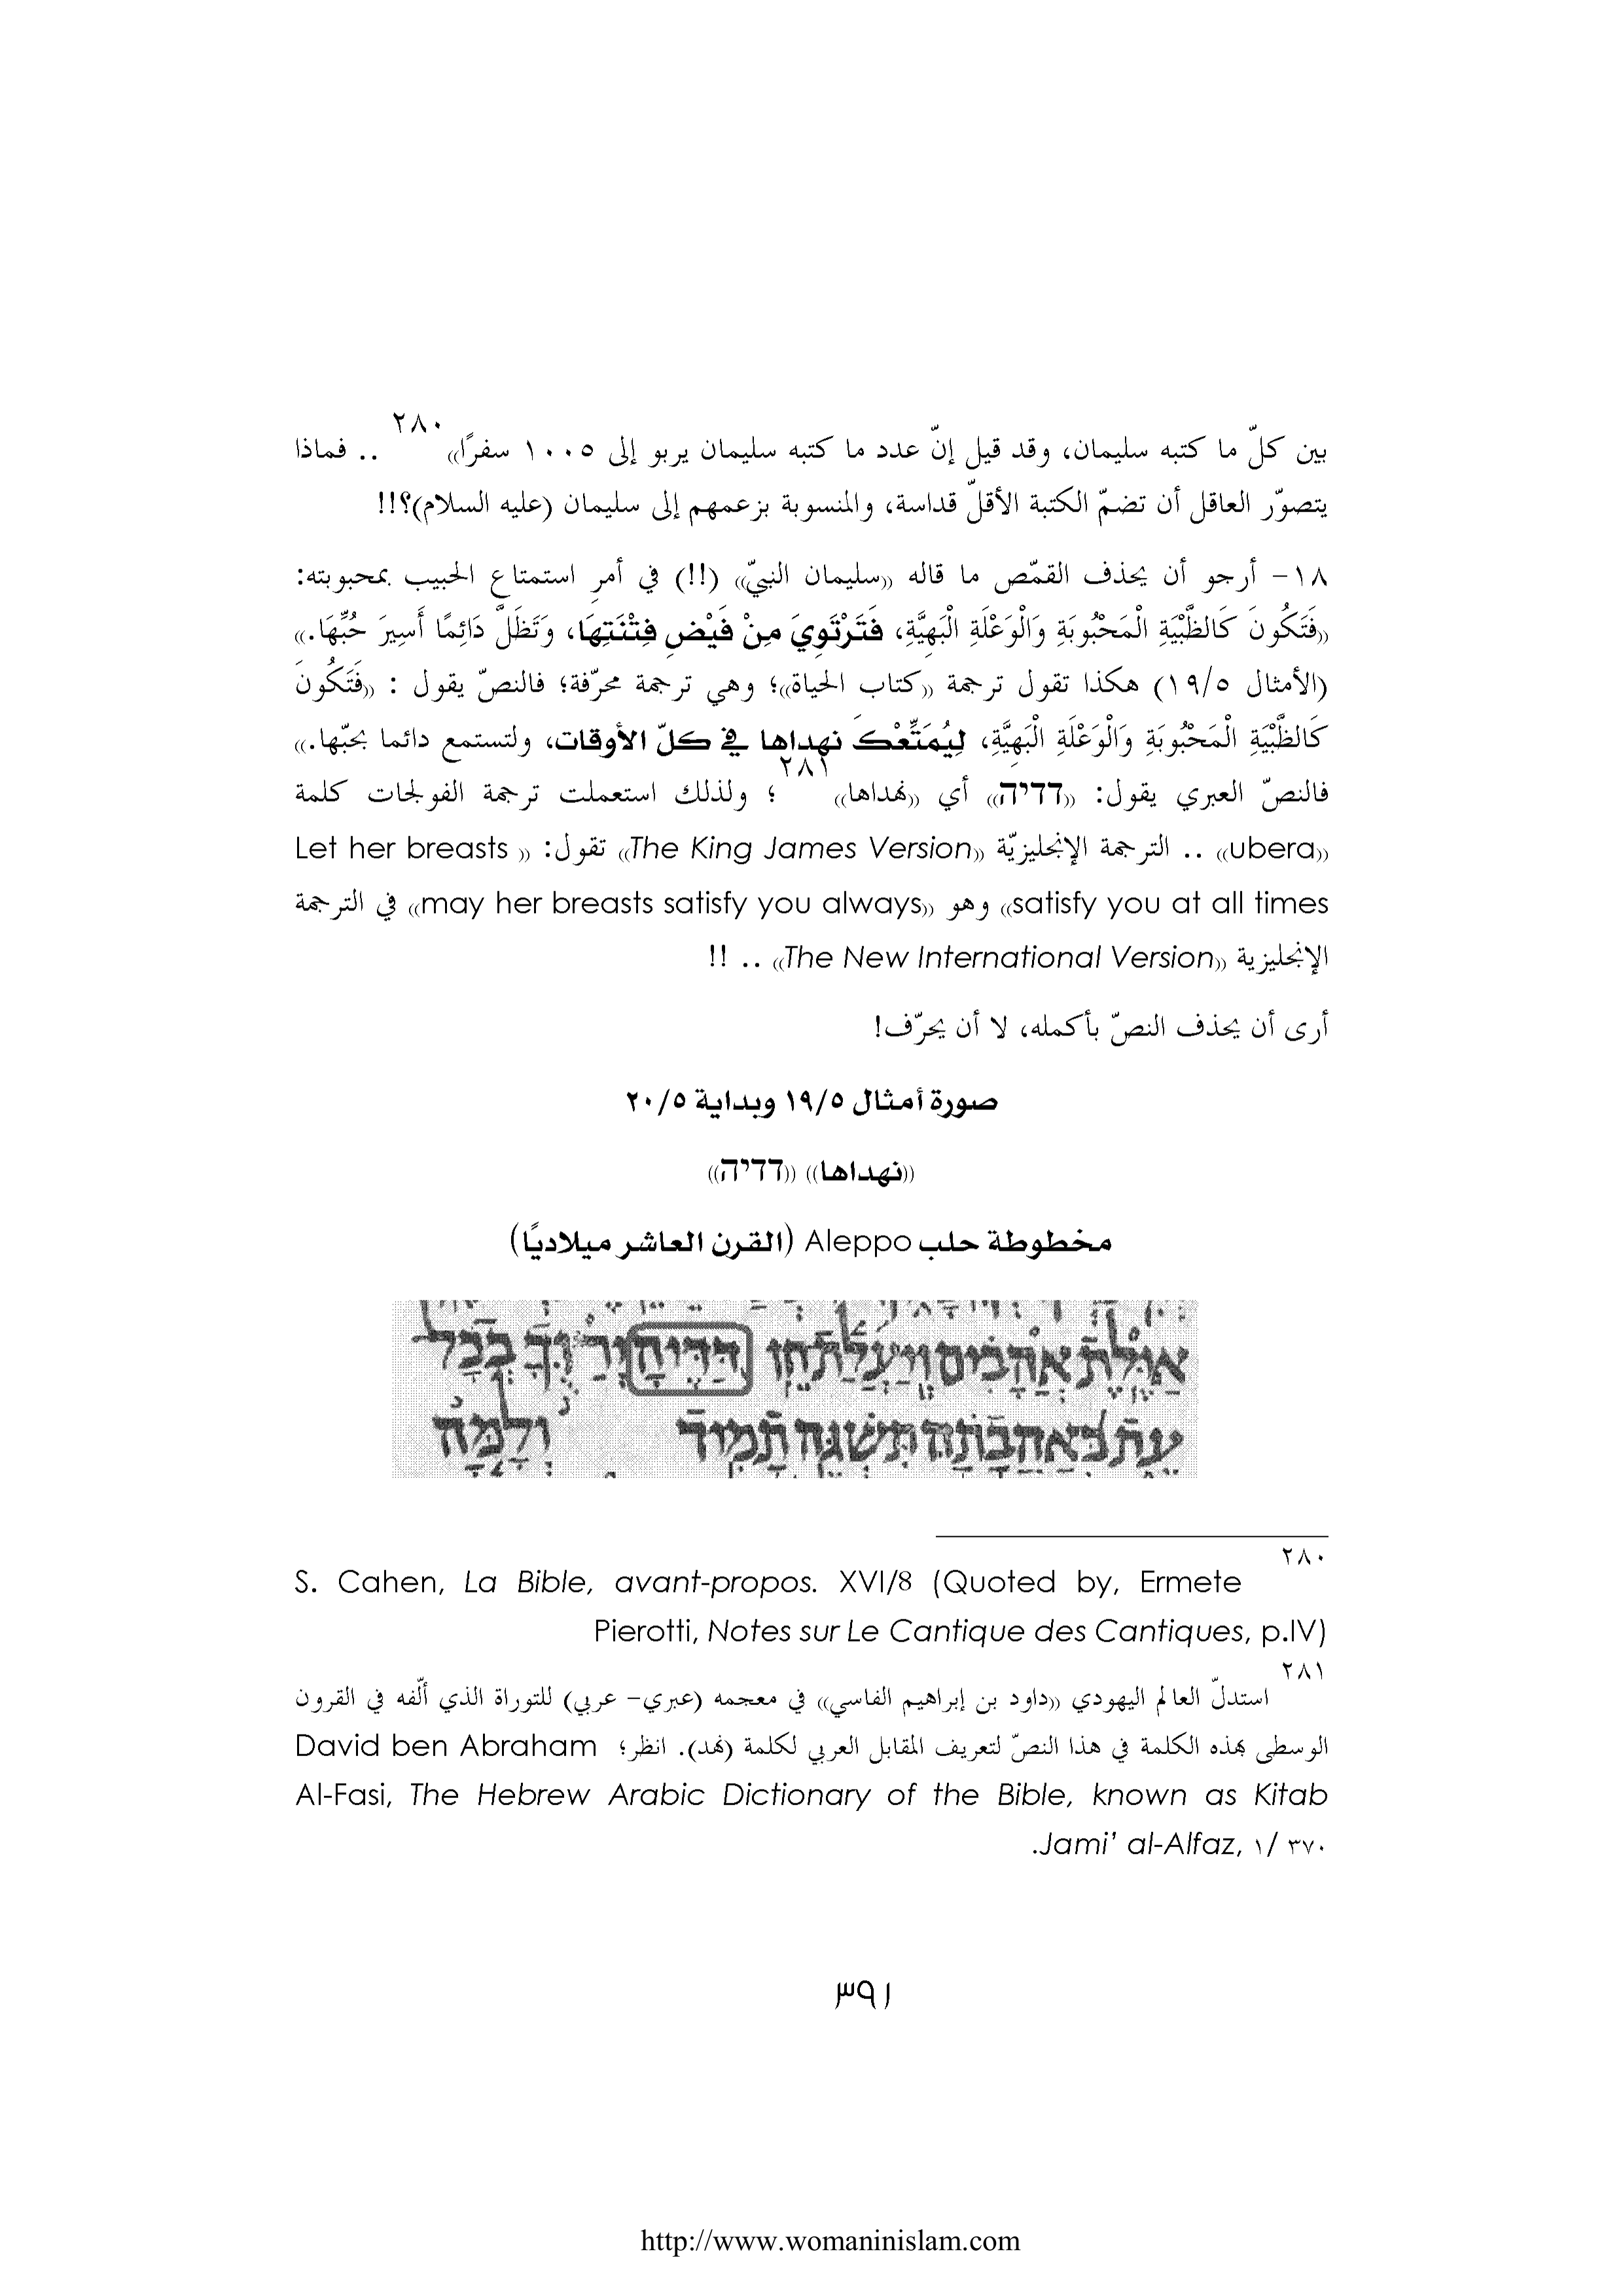 بين كلّ ما كتبه سليمان، وقد قيل إنّ عدد ما كتبه سليمان يربو إلى ١٠٠٥ سفرًا))٢٨٠ .. فماذا
يتصوّر العاقل أن تضمّ الكتبة الأقلّ قداسة، والمنسوبة بزعمهم إلى سليمان (عليه السلام)؟!!
١٨- أرجو أن يحذف القمّص ما قاله ((سليمان النبيّ)) (!!) في أمرِ استمتاع الحبيب بمحبوبته:
((فَتَكُونَ كَالظَّبْيَةِ الْمَحْبُوبَةِ وَالْوَعْلَةِ الْبَهِيَّةِ، فَتَرْتَوِيَ مِنْ فَيْضِ فِتْنَتِهَا، وَتَظَلَّ دَائِمًا أَسِيرَ حُبِّهَا.))
(الأمثال ١٩/٥) هكذا تقول ترجمة ((كتاب الحياة))؛ وهي ترجمة محرّفة؛ فالنصّ يقول : ((فَتَكُونَ
كَالظَّبْيَةِ الْمَحْبُوبَةِ وَالْوَعْلَةِ الْبَهِيَّةِ، لِيُمَتِّعْكَ نهداها في كلّ الأوقات، ولتستمع دائما بحبّها.))
فالنصّ العبري يقول: ((דדיה)) أي ((نهداها))٢٨١ ؛ ولذلك استعملت ترجمة الفولجات كلمة
((ubera)) .. الترجمة الإنجليزيّة ((The King James Version)) تقول: (( Let her breasts
satisfy you at all times)) وهو ((may her breasts satisfy you always)) في الترجمة
الإنجليزية ((The New International Version)) .. !!
أرى أن يحذف النصّ بأكمله، لا أن يحرّف!
صورة أمثال ١٩/٥ وبداية ٢٠/٥
((نهداها)) ((דדיה))
مخطوطة حلب Aleppo (القرن العاشر ميلاديًا)
אַיֶּלֶת אֲהָבִים וְיַעֲלַת חֵן דַּדֶּיהָ יְרַוֻּךָ בְכָל
עֵת בְּאַהֲבָתָהּ תִּשְׁגֶּה תָמִיד וְלָמָּה
٢٨٠ S. Cahen, La Bible, avant-propos. XVI/8 (Quoted by, Ermete
Pierotti, Notes sur Le Cantique des Cantiques, p.IV)
٢٨١ استدلّ العالم اليهودي ((داود بن إبراهيم الفاسي)) في معجمه (عبري- عربي) للتوراة الذي ألّفه في القرون
الوسطى بهذه الكلمة في هذا النصّ لتعريف المقابل العربي لكلمة (نهد). انظر؛ David ben Abraham
Al-Fasi, The Hebrew Arabic Dictionary of the Bible, known as Kitab
Jami’ al-Alfaz, ١/ ٣٧٠.
٣٩١
http://www.womaninislam.com